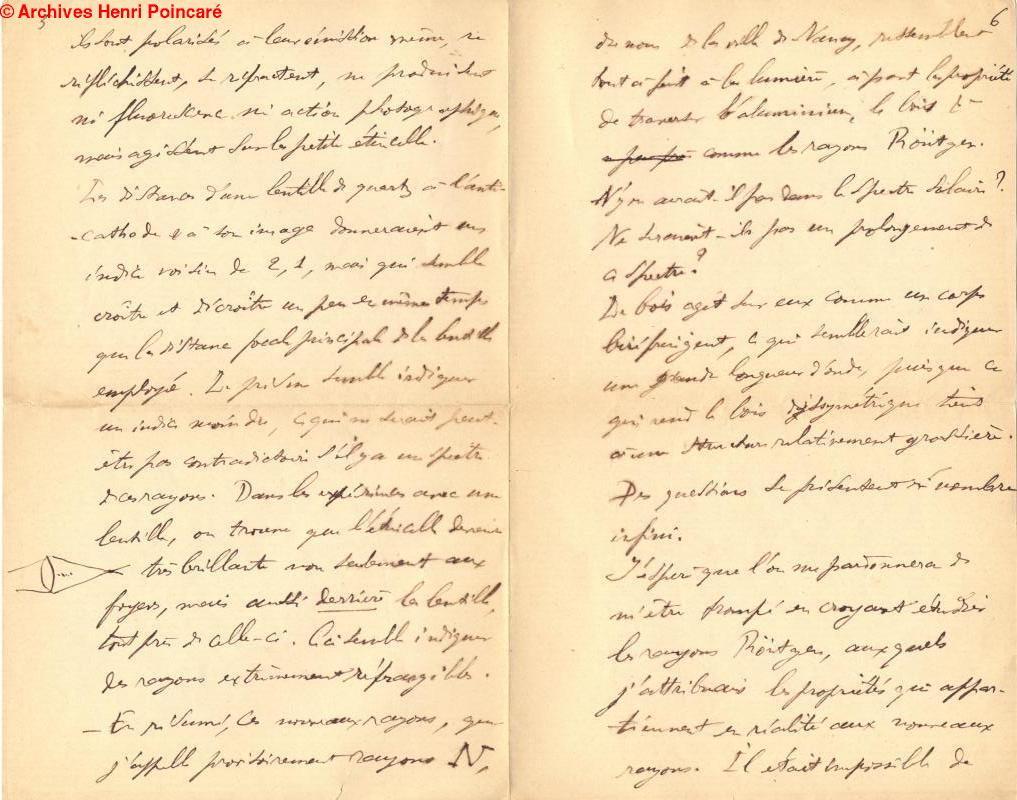 © Archives Henri Poincaré
5
ils sont polarisés à leur émission même, se
réfléchissent, se réfractent, ne produisent
ni fluorescence ni action photographique,
mais agissent sur la petite étincelle.
Les distances d'une lentille de quartz à l'anti-
-cathode et à son image donneraient un
indice voisin de 2,1, mais qui semble
croître et décroître un peu en même temps
que la distance focale principale de la lentille
employée. Le prisme semble indiquer
un indice moindre, ce qui ne serait peut-
être pas contradictoire s'il y a un spectre
de ces rayons. Dans les expériences avec une
lentille, on trouve que l'étincelle devient
très brillante non seulement aux
foyers, mais aussi derrière la lentille,
tout près de celle-ci. Ceci semble indiquer
des rayons extrêmement réfrangibles.
- En résumé, ces nouveaux rayons, que
j'appelle provisoirement rayons N,
6
du nom de la ville de Nancy, ressemblent
tout à fait à la lumière, à part la propriété
de traverser l'aluminium, le bois &
comme les rayons Röntgen.
N'y en aurait-il pas dans le spectre solaire?
Ne seraient-ils pas un prolongement de
ce spectre?
Le bois agit sur eux comme un corps
biréfringent, ce qui semblerait indiquer
une grande longueur d'onde, puisque ce
qui rend le bois dissymétrique tient
à une structure relativement grossière.
Des questions se présentent en nombre
infini.
J'espère que l'on me pardonnera de
m'être trompé en croyant étudier
les rayons Röntgen, auxquels
j'attribuais les propriétés qui appar-
tiennent en réalité aux nouveaux
rayons. Il était impossible de